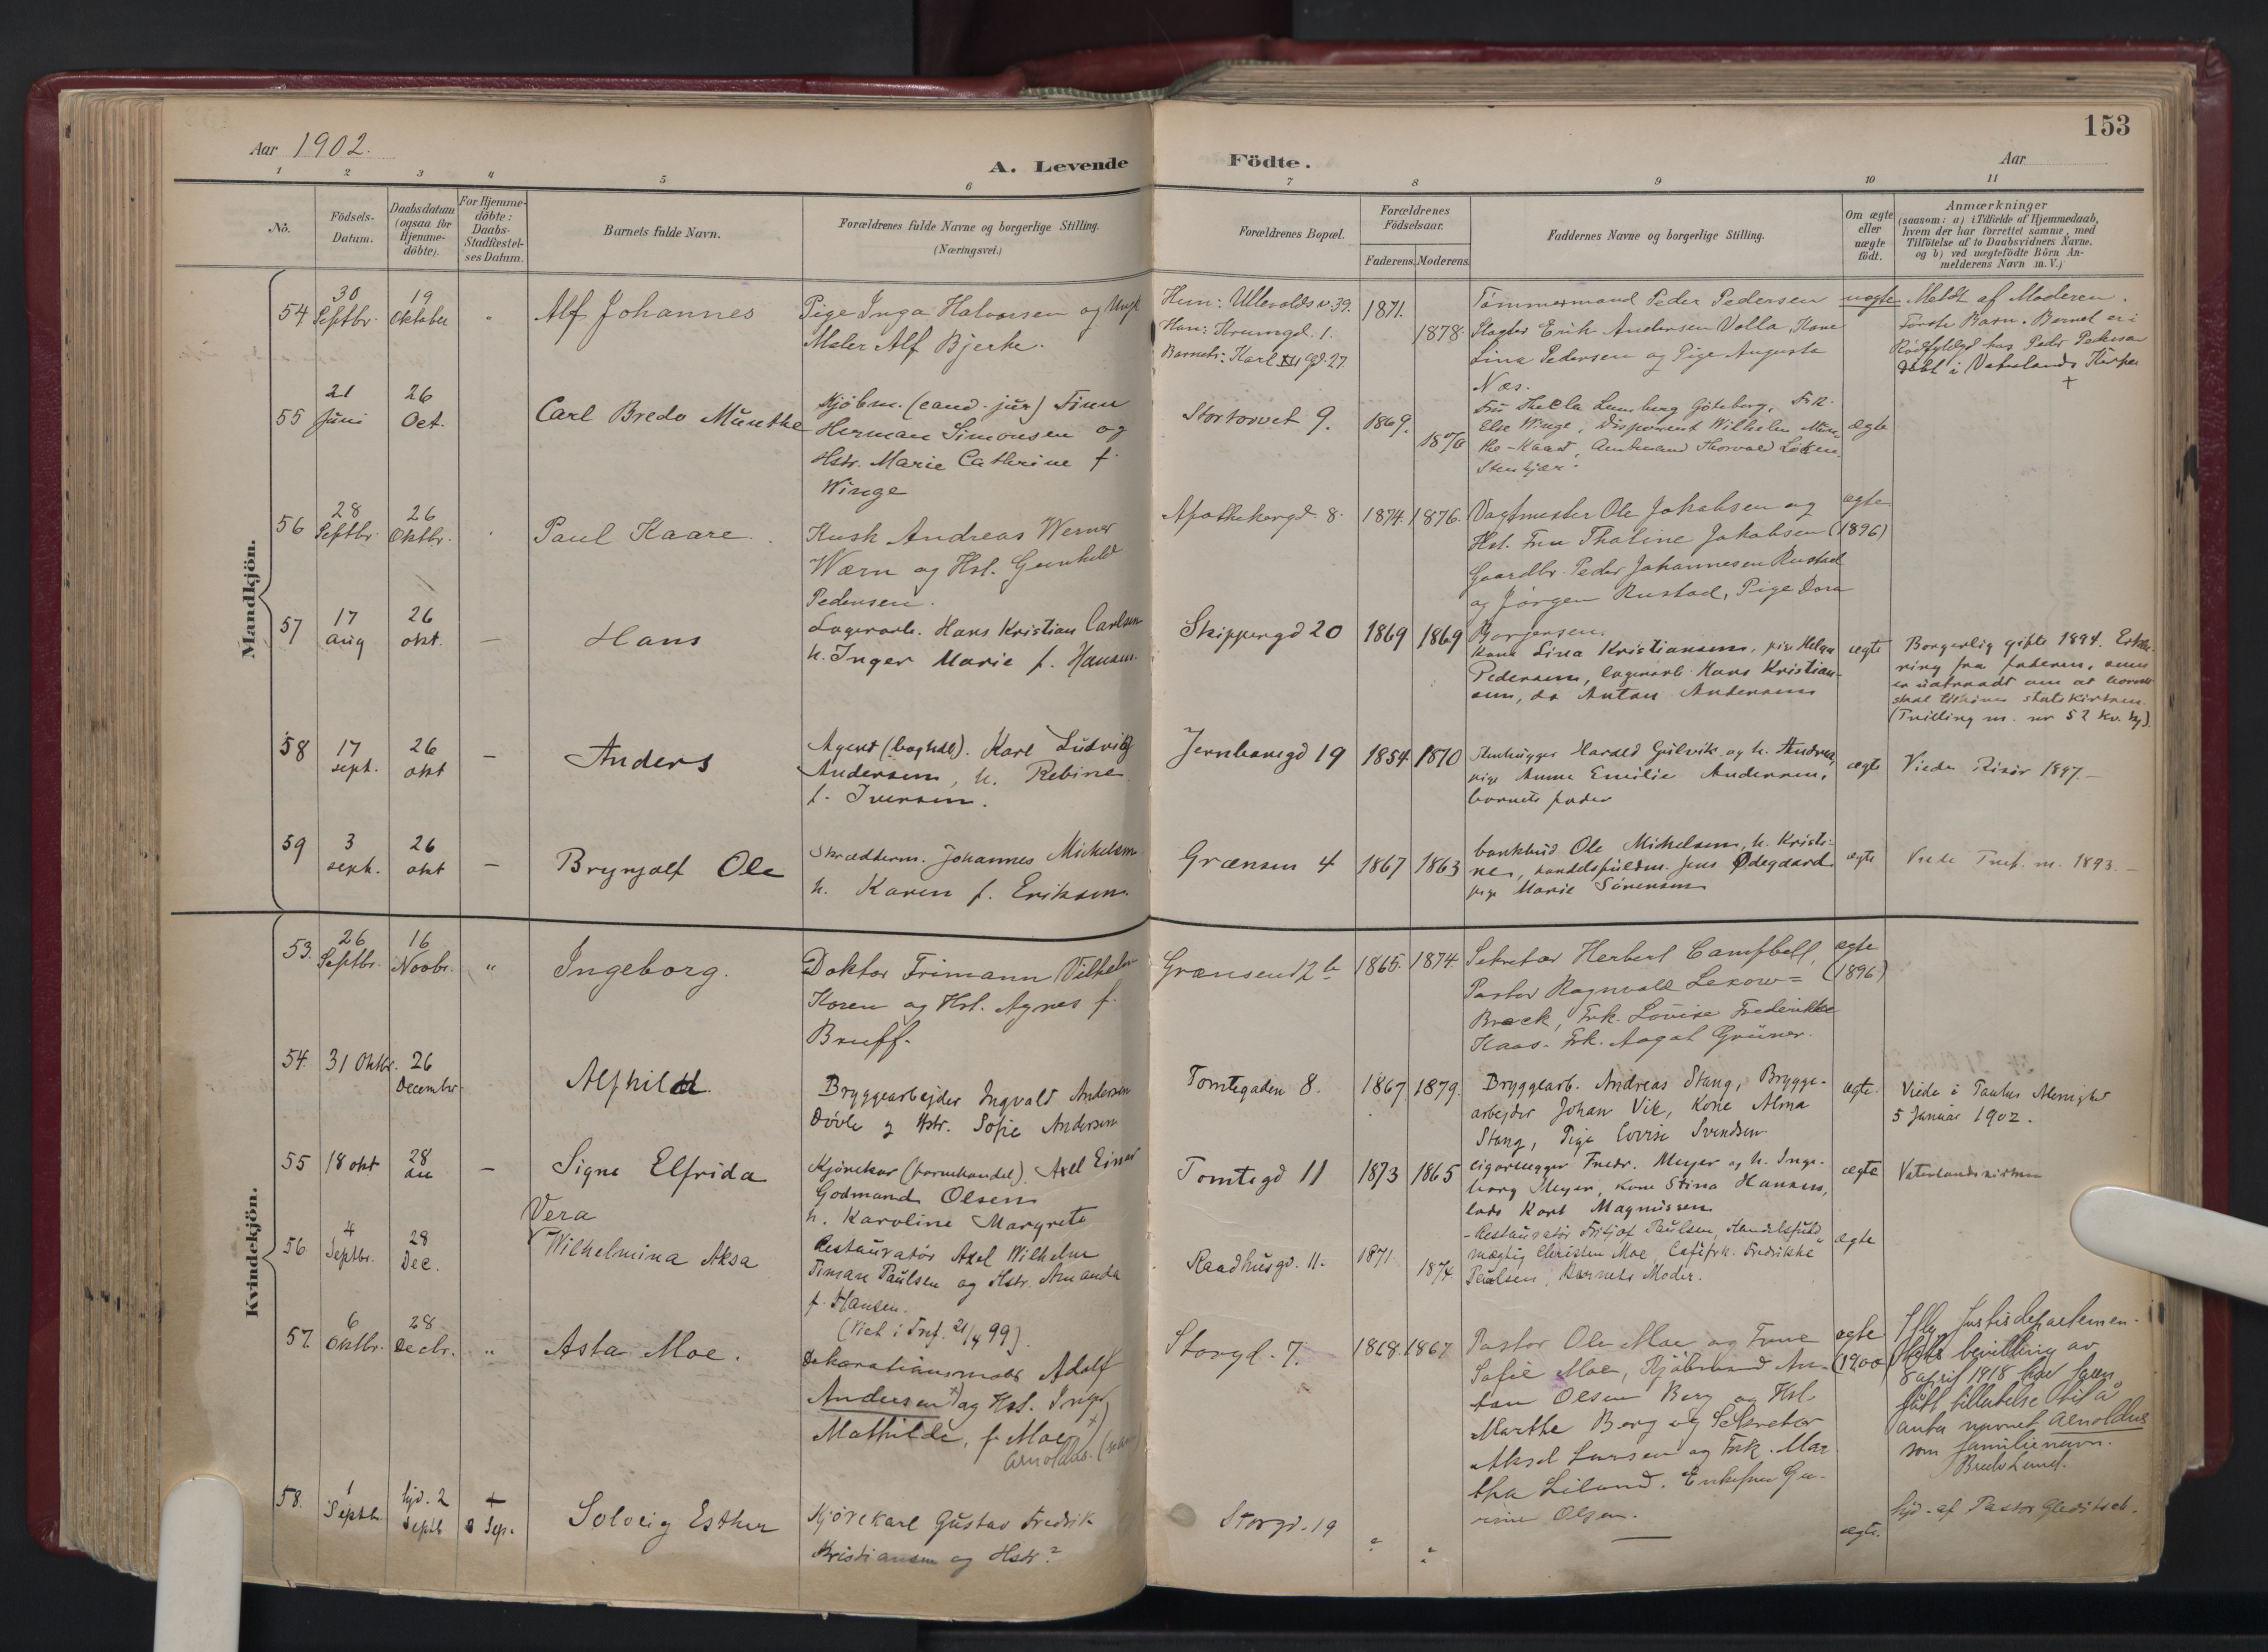 153
Aar 1902.
A. Levende Födte.
Aar
1 2 3 4 5 6 7 8 9 10 11
No.
Födsels-
Datum.
Daabsdatum
(ogsaa for
Hjemme-
döbte).
For Hjemme-
döbte:
Daabs-
Stadfæstel-
ses Datum.
Barnets fulde Navn.
Forældrenes fulde Navne og borgerlige Stilling.
(Næringsvei.)
Forældrenes Bopæl.
Forældrenes
Födselsaar.
Faderens. Moderens.
Faddernes Navne og borgerlige Stilling.
Om ægte
eller
uægte
födt.
Anmærkninger
(saasom: a) i Tilfælde af Hjemmedaab,
hvem der har forrettet samme, med
Tilföielse af to Daabsvidners Navne.
og b) ved uægtefödte Börn An-
melderens Navn m. V.)
Mandkjön.
54
30
Septbr.
19
Oktober
"
Alf Johannes
Pige Inga Halvorsen og Ungk.
Maler Alf Bjerke.
Hun: Ullevoldsv. 39.
Han: Krumgd. 1.
Barnets: Karl XII gd. 27.
1871.
1878.
Tömmermand Peder Pedersen
Slagter Erik Andersen Volla, Kone
Lina Pedersen og Pige Augusta
Næs.
uægte
Meldt af Moderen.
Förste Barn. Barnet er i
hos Peder Pedersen
Döbt i Vaterlands Kirke
+
55
21
Juni
26
Oct.
Carl Bredo Munthe
Kjöbm. (cand. jur) Finn
Herman Simonsen og
Hstr. Marie Cathrine f.
Winge
Stortorvet 9.
1869.
1870
Fru Thecla Lumberg Göteborg, Frk.
Else Winge, Disponent Wilhelm Mun-
the-Kaas, Amtmand Thorvald Löken
Stenkjær.
ægte
56
28
Septbr.
26
Oktbr.
Paul Kaare.
Kusk Andreas Werner
Wærn og Hst. Gunhild
Pedersen.
Apothekergd. 8.
1874. 1876.
Vagtmester Ole Jakobsen og
Hst. Fru Thaline Jakobsen
Gaardbr. Peder Johannesen Rustad
og Jörgen Rustad, Pige Dora
Borgersen.
ægte
(1896)
57
17
aug
26
okt.
—
Hans
Lagerarb. Hans Kristian Carlsen
h. Inger Marie f. Hansen.
Skippergd 20
1869 1869
Kone Lina Kristiansen, pige Helga
Pedersen, lagerarb. Hans Kristian-
sen, do Anton Andersen
ægte
Borgerlig gifte 1894. Erklæ-
ring fra faderen, som
er udtraadt om at barnet
skal tilhöre statskirken.
(Tvilling m. nr 52 kv. kj.)
58
17
sept.
26
okt
—
Anders
Agent (boghdl). Karl Ludvig
Andersen, h. Rebine
f. Iversen.
Jernbanegd 19
1854. 1870
Stenhugger Harald Gulvik og h. Andrea,
pige Anna Emilie Andersen,
barnets fader
ægte
Viede Risör 1897.—
59
3
sept.
26
okt
—
Brynjolf Ole
Skrædderm. Johannes Mickelsen
h. Karen f. Eriksen.
Grænsen 4
1867 1863
bankbud Ole Mickelsen, h. Kristi-
ne, handelsfuldm. Jens Ödegaard
pige Marie Sörensen
ægte
Viede Tref. m. 1893.—
Kvindekjön.
53.
26
Septbr.
16
Novbr.
"
Ingeborg.
Doktor Frimann Vilhelm
Koren og Hst. Agnes f.
Bruff.
Grænsen 12 b
1865. 1874.
Sekretær Herbert Campbell,
Pastor Ragnvald Lexow=
Bræck, Frk. Lovise Frederikke
Kaas. Frk. Aagot Grüner.
ægte
(1896)
54.
31 Oktbr.
26
December
Alfhild.
Bryggearbejder Ingvald Andersen
Dövle og Hstr. Sofie Andersen
Tomtegaden 8.
1867 1879.
Bryggearb. Andreas Stang, Brygge-
arbejder Johan Vik, Kone Alma
Stang, Pige Lovise Svendsen
ægte.
Viede i Paulus Menighed
5 Januar 1902.
55
18 okt
28
—
Signe Elfrida
Kjörekar (fornehandel). Axel Einar
Godmand Olsen
h. Karoline Margrete
Tomtegd 11
1873 1865
cigarlægger Fredr. Meyer og h. Inge-
borg Meyer, kone Stina Hansen,
lods Karl Magnussen
ægte
Vaterlandskirken
56.
4
Septbr.
28
Dec.
Vera
Wilhelmina Aksa
Restauratör Axel Wilhelm
Paulsen og Hstr. Amanda
f. Hansen.
(Viet i Tref. 21/4 99).
Raadhusgd. 11.
1871
1874.
Restauratör Fritjof Paulsen, Handelsfuld-
mægtig Christen Moe, Caféfrk. Fredrikke
Paulsen, Barnets Moder.
ægte
57.
6
Oktbr.
28
Decbr.
"
Asta Moe.
Dekorationsmaler Adolf
Andersen x) og Hst. Inger
Mathilde, f. Moe
x) Arnoldus.
Storgd. 7.
1868. 1867
Pastor Ole Moe og Frue
Sofie Moe, Kjöbmand An-
ton Olsen Berg og Hst.
Marthe Berg og Sekretær
Aksel Larsen og Frk. Mar-
tha Lilund. Enkefru Gu-
rine Olsen.
ægte
(1900)
Iflg. Justisdepartemen-
tets bevilling av
8 april 1918 har faren
fått tillatelse til å
anta navnet Arnoldus
som familienavn.
58.
1
Septb.
hjd. 2
Septb
+
Sep.
Solveig Esther
Kjörekarl Gustav Fredrik
Kristiansen og Hstr. ?
Storgd. 19
?
?
—
ægte.
hjd. af Pastor Gleditsch.